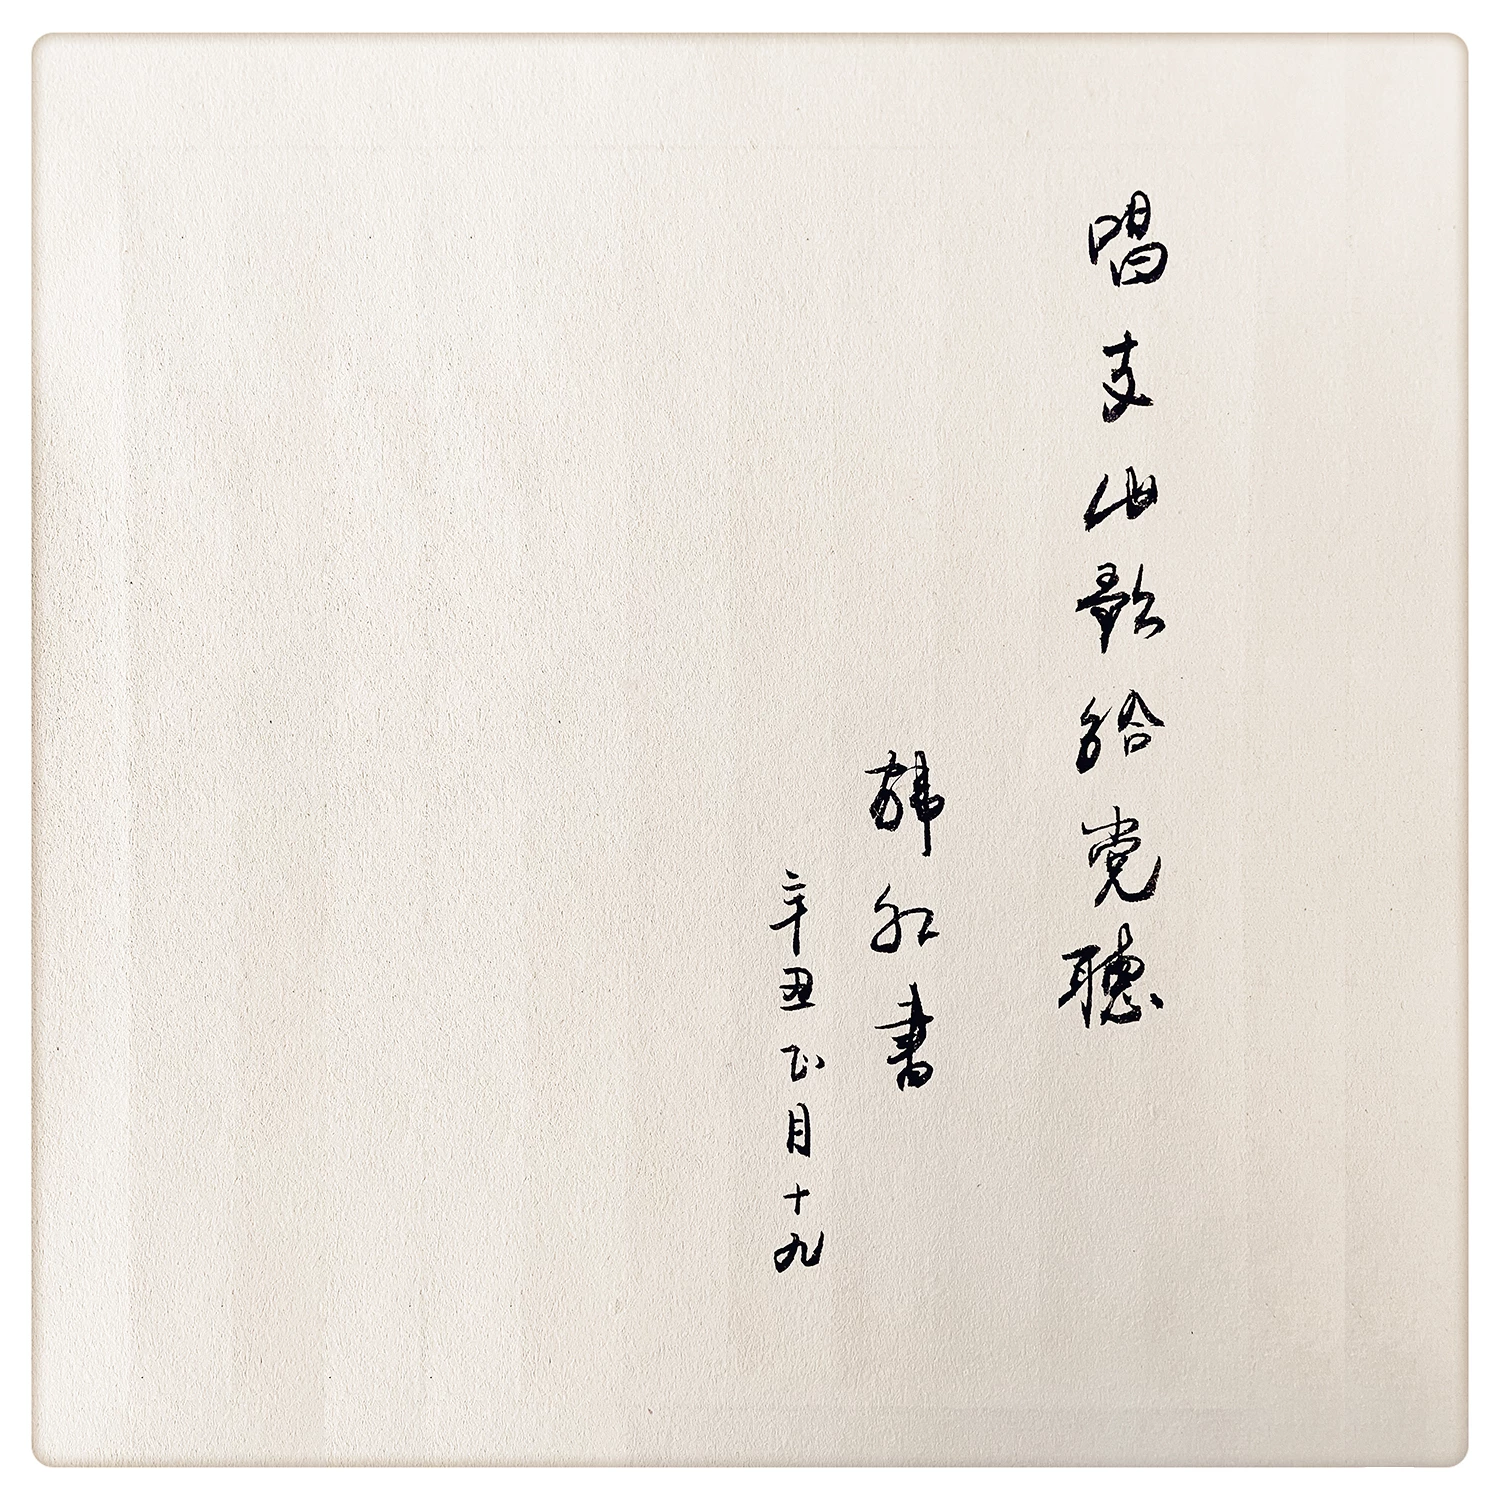 唱支山歌给党聽
韓红書
辛丑正月十九